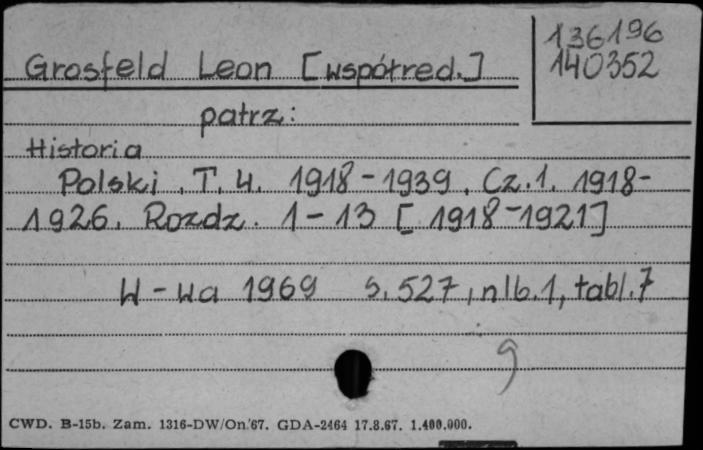 136196
140352
Grosfeld Leon [współred.]
patrz:
Historia
Polski. T. 4. 1918-1939. Cz.1. 1918-
1926. Rozdz. 1-13 [1918-1921]
W-wa 1969 s. 527, nlb.1, tabl.7
9
CWD. B-15b. Zam. 1316-DW/On.'67. GDA-2464 17.8.67. 1.400.000.